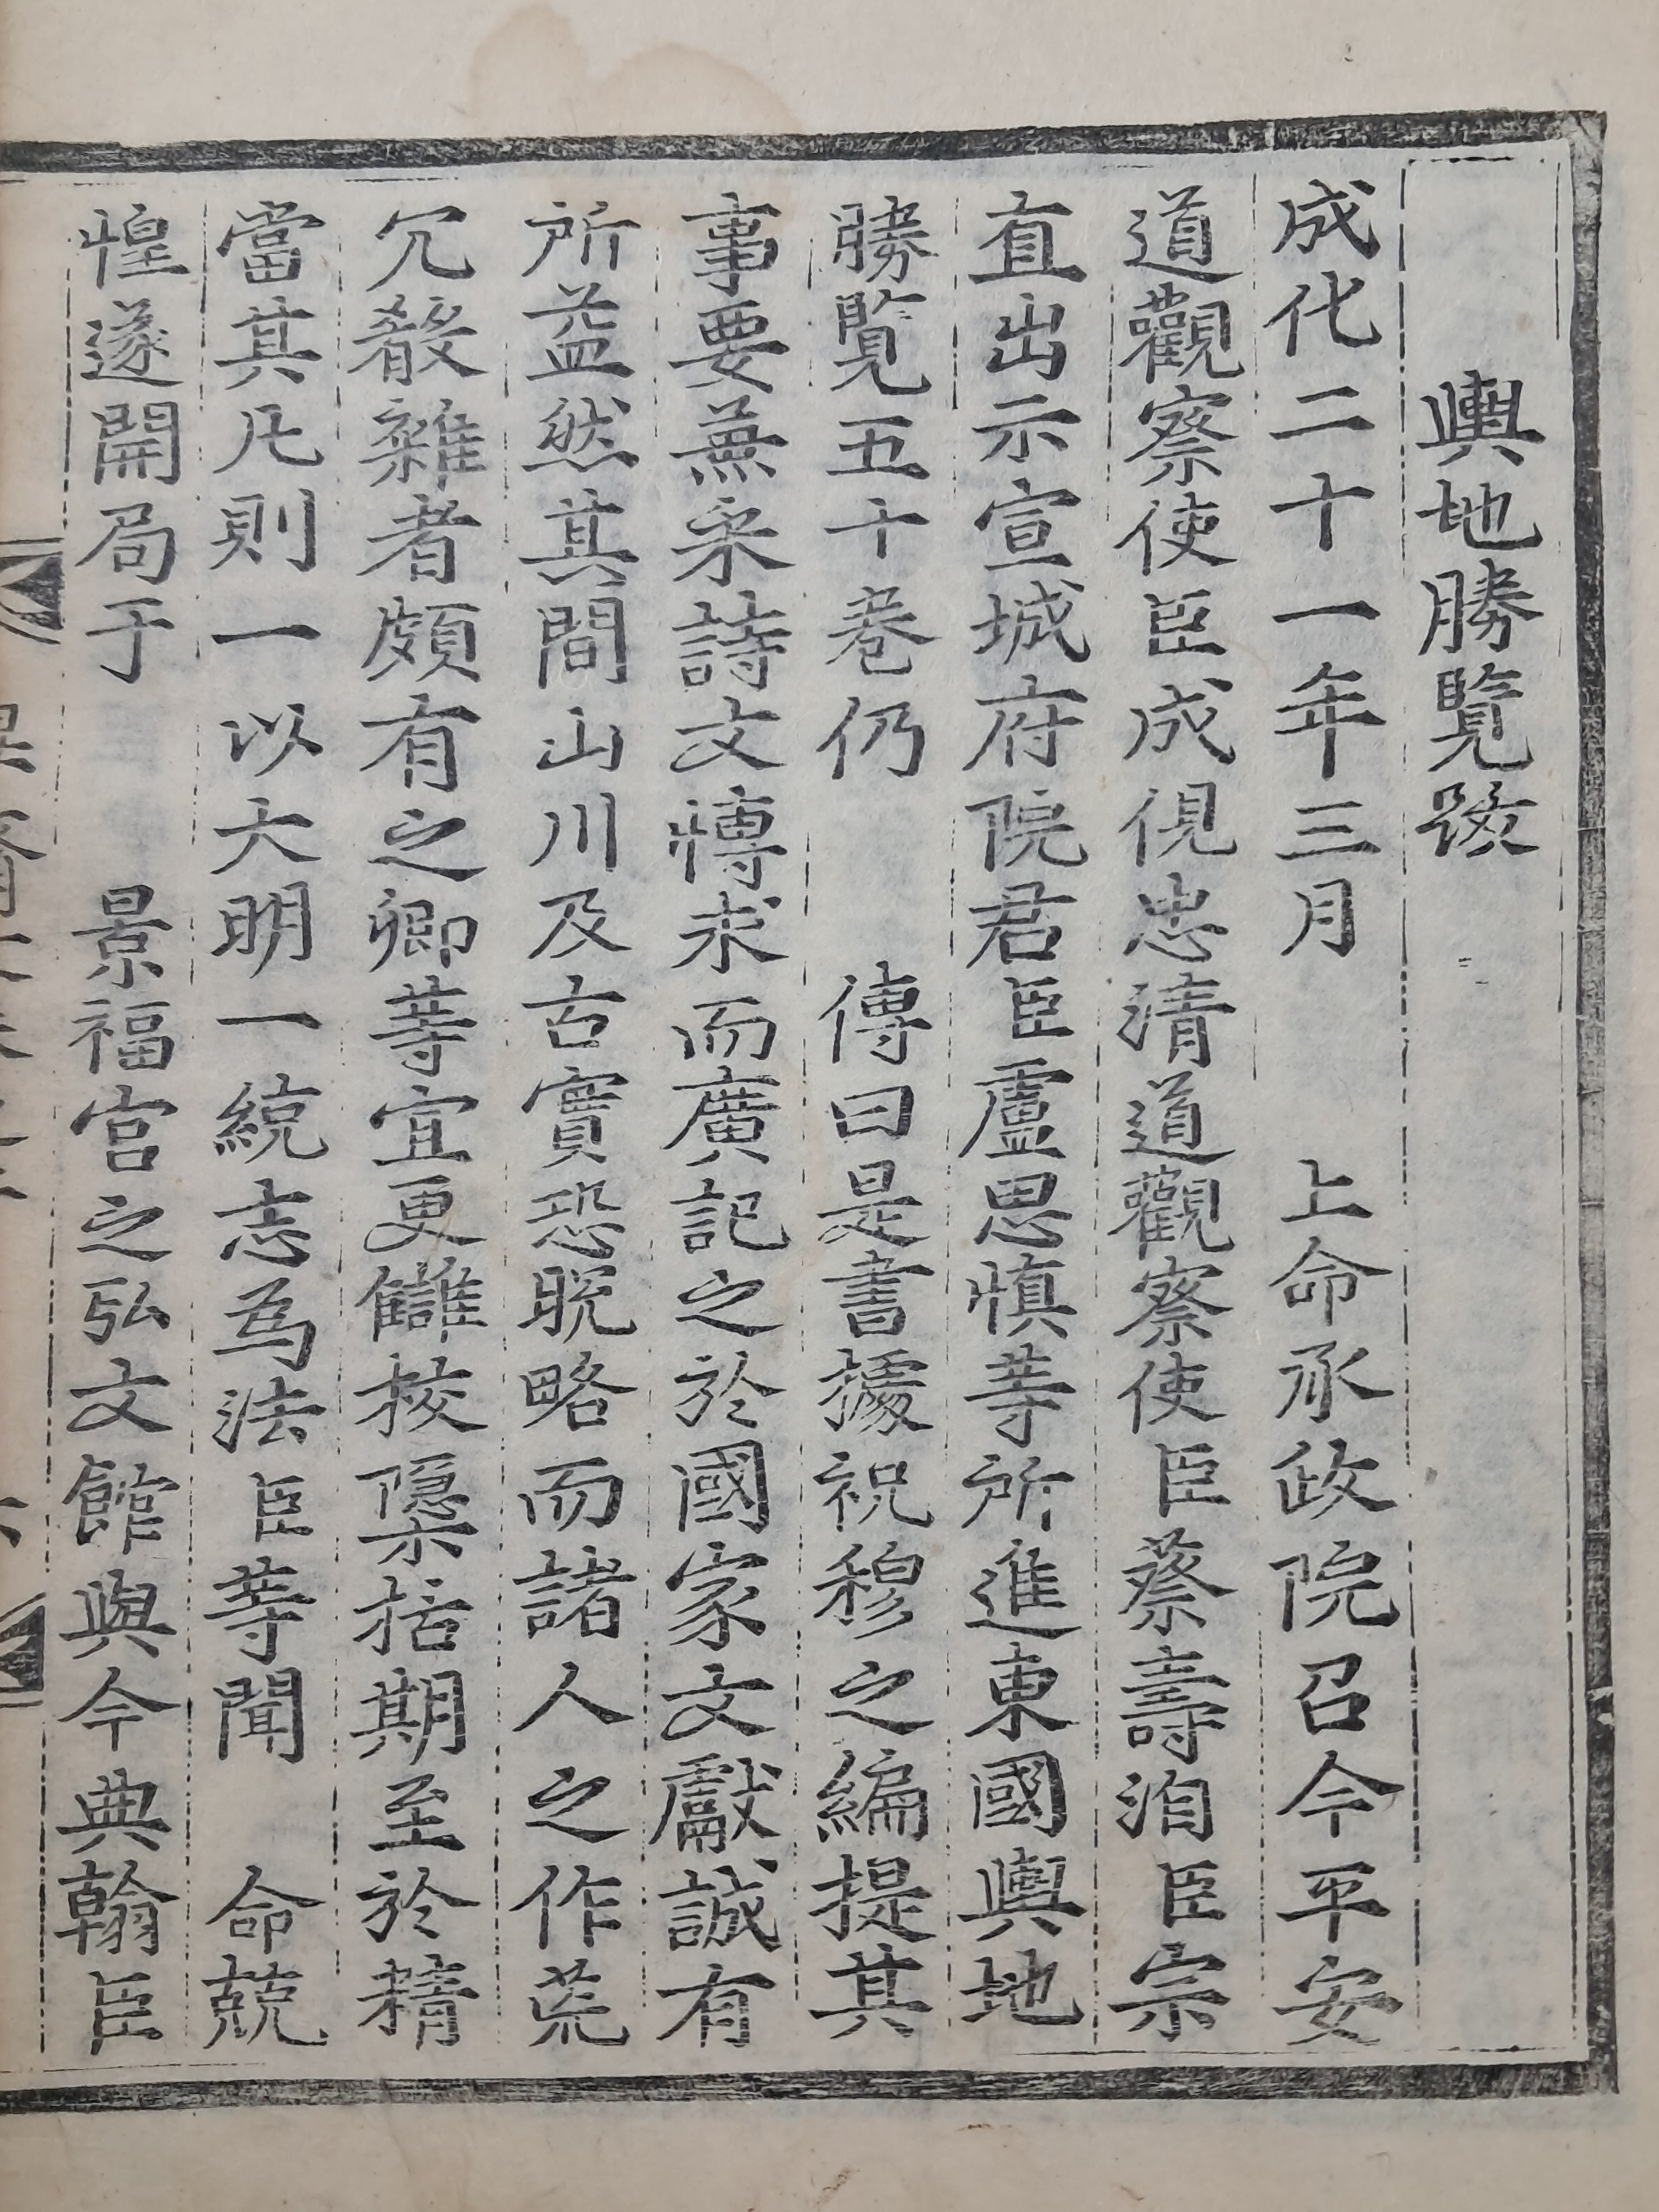 輿地勝覽跋
成化二十一年三月 上命承政院召今平安
道觀察使臣成俔忠清道觀察使臣蔡壽洎臣宗
直出示宣城府院君臣盧思愼等所進東國輿地
勝覽五十卷仍 傳曰是書據祝穆之編提其
事要兼采詩文博求而廣記之於國家文獻誠有
所益然其間山川及古實恐脫略而諸人之作荒
冗散雜者頗有之卿等宜更讎校隱括期至於精
當其凡則一以大明一統志爲法臣等聞 命兢
惶遂開局于 景福宮之弘文館與今典翰臣